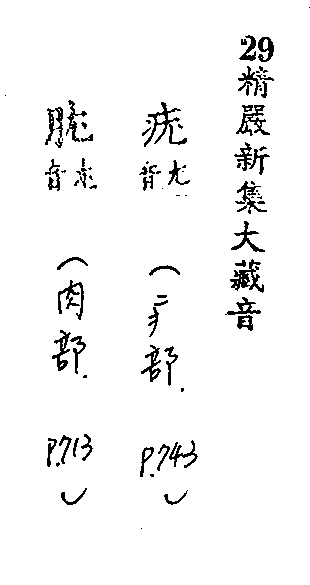 29精嚴新集大藏音
疣 音尤 (疒部. P.743)
音 (肉部. P.713)